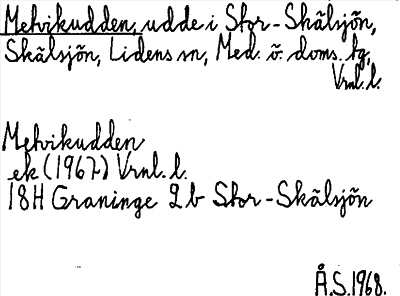 Metvikudden, udde i Stor-Skälsjön,
Skälsjön, Lidens sn, Med. ö. doms. tg,
Vrnl. l.
Metvikudden
ek (1967) Vrnl. l.
18H Graninge 2 b Stor-Skälsjön
Å.S. 1968.